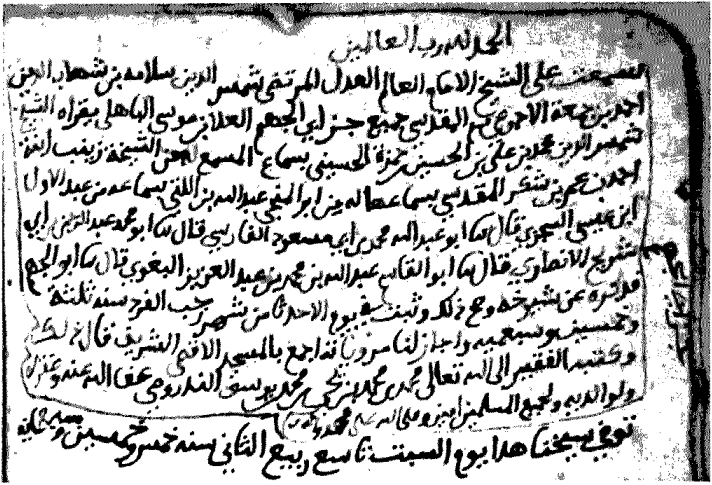 الحمد لله رب العالمين
سمعت على الشيخ الامام العالم العدل المرتضى شمس الدين سلامه بن شهاب الدين
احمد بن جمعة المقدسي جميع جزء ابي الجهم العلا بن موسى الباهلي بقراه الشيخ
شمس الدين محمد بن علي بن الحسين بن حمزة الحسيني بسماع المسمع له من الشيخة زينب ابنة
احمد بن عمر بن شكر المقدسي بسماعها له من ابي المنجى عبد الله بن اللتي بسماعه من عبد الاول
ابن عيسى السجزي قال انا ابو عبد الله محمد بن ابي مسعود الفارسي قال انا ابو محمد عبد الرحمن بن ابي
شريح الانصاري قال انا ابو القاسم عبد الله بن محمد بن عبد العزيز البغوي قال انا ابو الجهم
فذكره عن شيوخه وصح ذلك وثبت في يوم الاحد ثامن شهر رجب الفرد سنه ثلثة
وخمسين وسبعميه واجاز لنا مروياته اجمع بالمسجد الاقصى الشريف قال ذلك
وكتبه الفقير الى الله تعالى محمد بن محمد بن يحيى بن محمد بن يوسف الندرومي عفا الله عنه وغفر له
ولوالديه ولجميع المسلمين امين وصلى الله على محمد
توفي شيخنا هذا يوم السبت تاسع ربيع الثاني سنه خمس وخمسين وسبعمائه